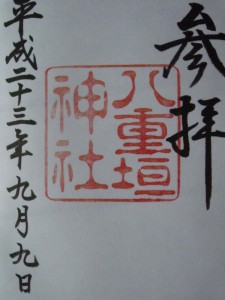 参拝
八重垣
神社
平成二十三年九月九日